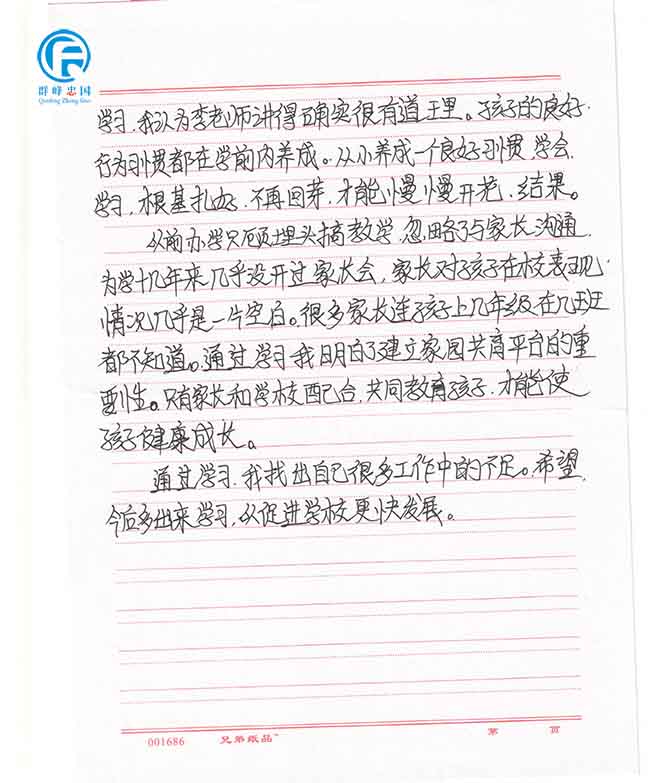 群峰忠国
Qunfeng Zhong Guo
学习，我认为李老师讲得确实很有道理。孩子的良好
行为习惯都在学前内养成。从小养成一个良好习惯，学会
学习，根基扎好，不再回芽，才能慢慢开花、结果。
从前办学只顾埋头搞教学，忽略了与家长沟通，
为学十几年来几乎没开过家长会，家长对孩子在校表现
情况几乎是一片空白。很多家长连孩子上几年级在几班
都不知道。通过学习我明白了建立家园共育平台的重
要性。只有家长和学校配合，共同教育孩子，才能使
孩子健康成长。
通过学习，我找出自己很多工作中的不足。希望
今后多出来学习，以促进学校更快发展。
001686 兄弟纸品 第 页